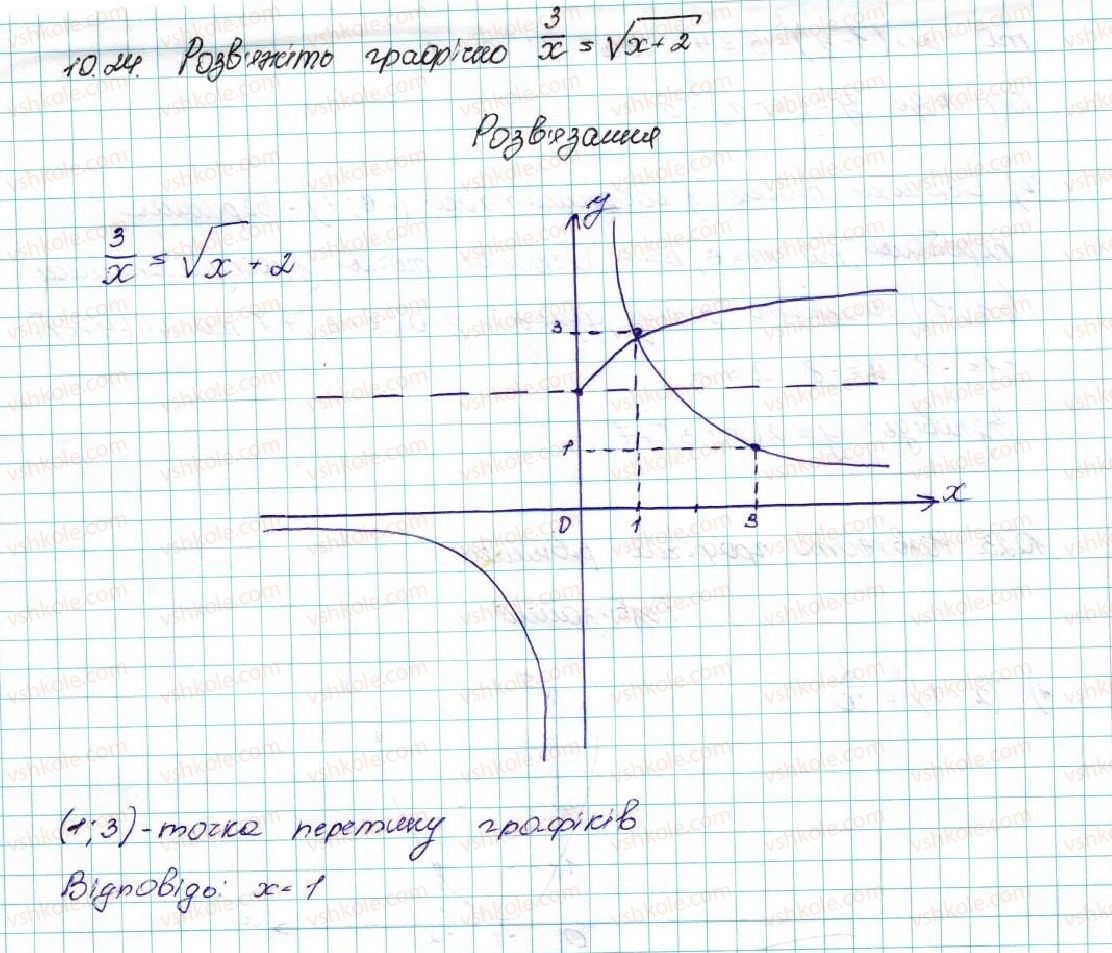 10.24. Розв'яжіть графічно 3/x = √(x+2)
Розв'язання
3/x = √x + 2
y
3
1
0 1 3 x
(1;3) - точка перетину графіків
Відповідь: x = 1
vshkole.com